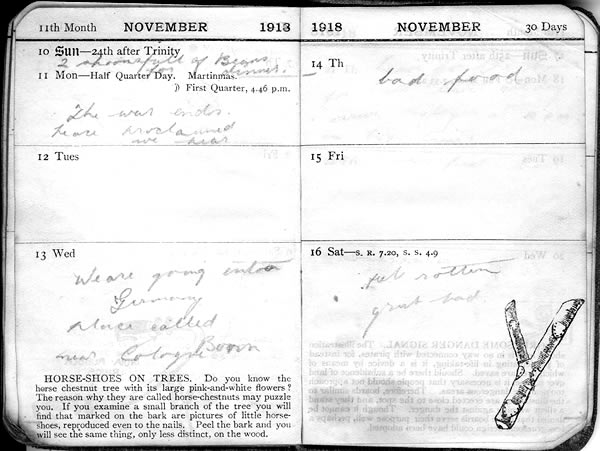 11th Month NOVEMBER 1918
10 Sun—24th after Trinity
2 spoonsfull of Beans
for dinner.
11 Mon—Half Quarter Day. Martinmas.
☽ First Quarter, 4.46 p.m.
The war ends.
Peace proclaimed
we hear
12 Tues
13 Wed
We are going into
Germany
place called
Bonn
near Cologne
HORSE-SHOES ON TREES. Do you know the
horse chestnut tree with its large pink-and-white flowers?
The reason why they are called horse-chestnuts may puzzle
you. If you examine a small branch of the tree you will
find that marked on the bark are pictures of little horse-
shoes, reproduced even to the nails. Peel the bark and you
will see the same thing, only less distinct, on the wood.
1918 NOVEMBER 30 Days
14 Th
bad food
15 Fri
16 Sat—S. R. 7.20, S. S. 4.9
feel rotten
grub bad